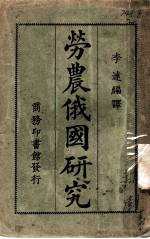 李達編譯
勞農俄國研究
商務印書館發行